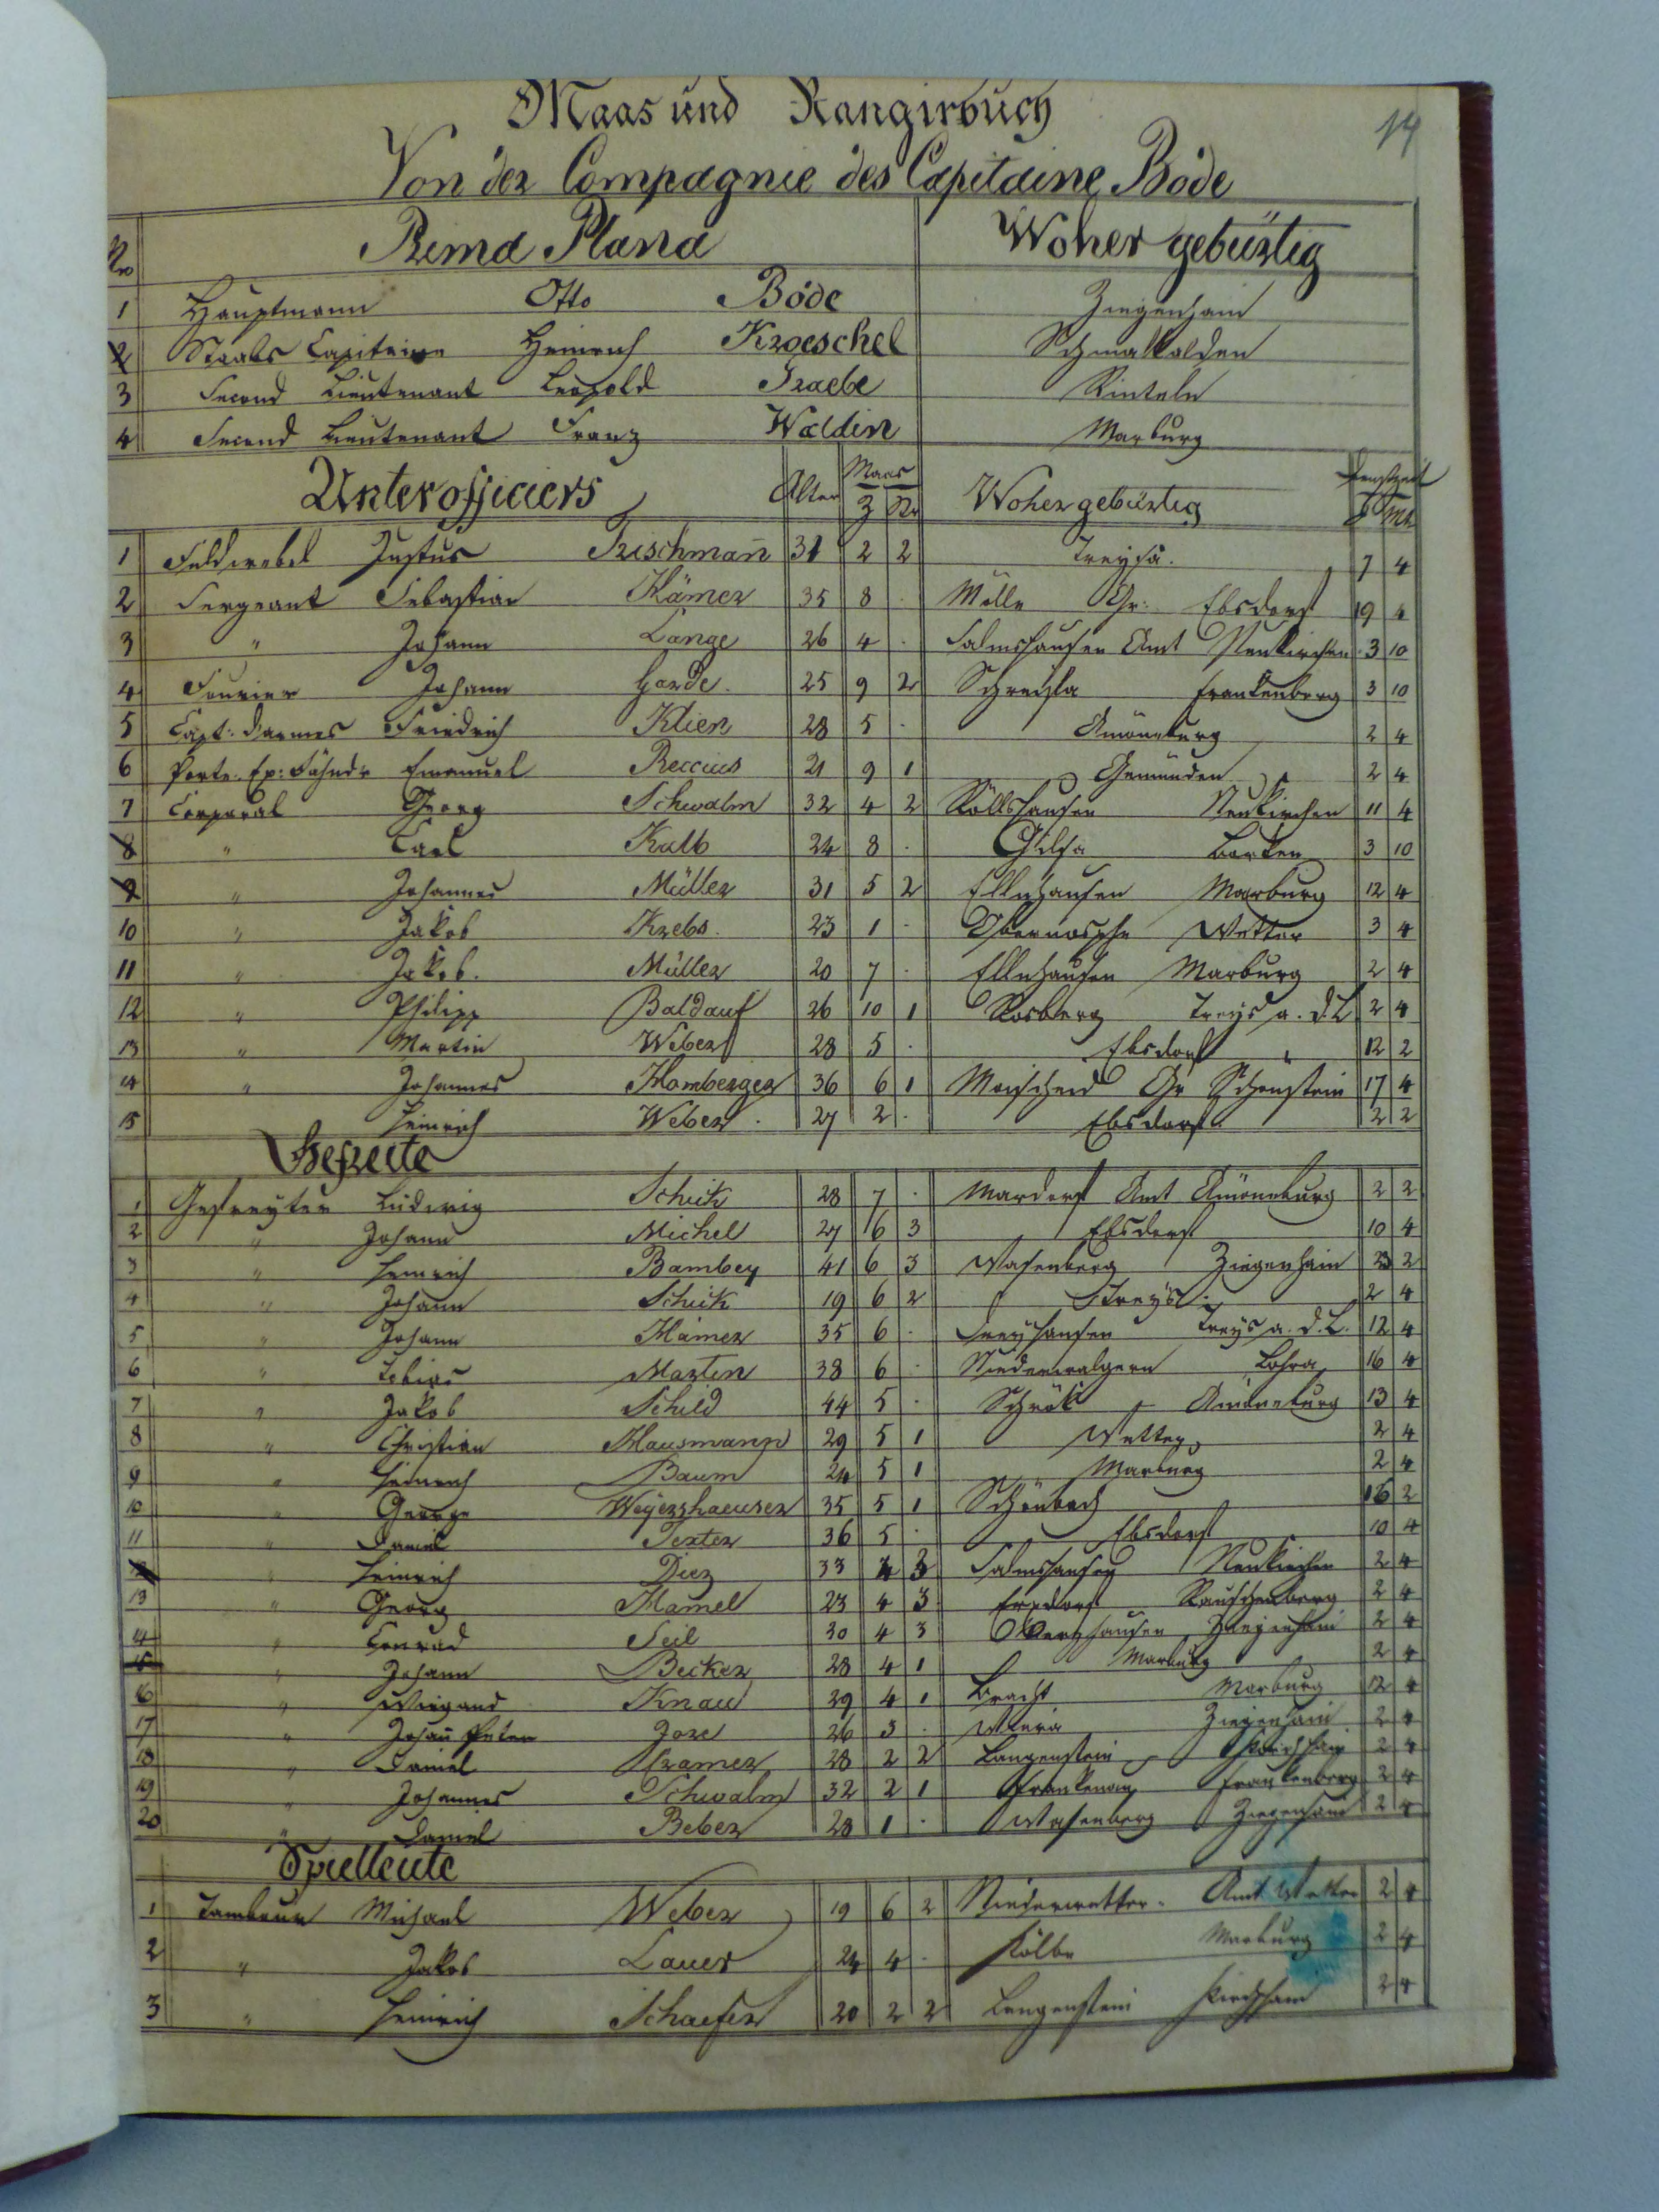 Maas und Rangirbuch
14
Von der Compagnie des Capitaine Bode
No Prima Plana Woher gebürtig
1 Hauptmann Otto Bode Ziegenhain
2 Staabs Capitaine Heinrich Kroeschel Schmalkalden
3 Second Lieutenant Leopold Graebe Rinteln
4 Second Lieutenant Franz Waldin Marburg
Unterofficiers Alter Maas Woher gebürtig Dienstzeit
Z Str J Mt
1 Feldwebel Justus Frischmañ 31 2 2 Treysa. 7 4
2 Sergeant Sebastian Hämer 35 8 . Mölln Gr: Ebsdorf 19 4
3 " Johann Lange 26 4 . Salmshausen Amt Neukirchen 3 10
4 Fourier Johann Garde. 25 9 2 Schreufa Frankenberg 3 10
5 Capt: darmes Friedrich Klien 28 5 . Amöneburg 2 4
6 Porte. Ep: Fähndr Emanuel Reccius 21 9 1 Gemünden 2 4
7 Corporal Georg Schwalm 32 4 2 Röllshausen Neukirchen 11 4
8 " Carl Kalb 24 8 . Gilsa Borken 3 10
9 " Johannes Müller 31 5 2 Ellnhausen Marburg 12 4
10 " Jakob Krebs. 23 1 . Obernosphe Wetter 3 4
11 " Jakob. Müller 20 7 . Ellnhausen Marburg 2 4
12 " Philipp Baldauf 26 10 1 Rosberg Treys a. d. L 2 4
13 " Martin Weber 28 5 . Ebsdorf " 12 2
14 " Johannes Homberger 36 6 1 Moischeid Gr Schönstein 17 4
15 Heinrich Weber. 27 2 . Ebsdorf 2 2
Gefreite
1 Gefreyter Ludwig Schick 28 7 . Mardorf Amt Amöneburg 2 2
2 " Johann Michel 27 6 3 Ebsdorf 10 4
3 " Heinrich Bambey 41 6 3 Wasenberg Ziegenhain 23 2
4 " Johann Schick 19 6 2 Treys. 2 4
5 " Johann Hämer 35 6 . Dreyhausen Treys a. d. L. 12 4
6 " Tobias Martin 38 6 . Niederwalgern Lohra 16 4
7 " Jakob Schild 44 5 . Schrök Amöneburg 13 4
8 " Christian Hausmann 29 5 1 Wetter 2 4
9 " Heinrich Baum 24 5 1 Marburg 2 4
10 " George Weyershaeuser 35 5 1 Schönbach 16 2
11 " Daniel Texter 36 5 . Ebsdorf 10 4
12 " Heinrich Diez 33 4 3 Salmshausen Neukirchen 2 4
13 " Georg Hamel 23 4 3 Erxdorf Rauschenberg 2 4
14 " Conrad Seil 30 4 3 Ziegenhain 2 4
15 " Johann Becker 28 4 1 Marburg 2 4
16 " Weigand Knau 29 4 1 Bracht Marburg 12 4
17 " Johañ Peter Jose 26 3 . Wiera Ziegenhain 2 4
18 " Daniel Cramer 28 2 2 Langenstein Kirchhain 2 4
19 " Johannes Schwalm 32 2 1 Frankenau Frankenberg 2 4
20 " Daniel Beber 28 1 . Wasenberg Ziegenhain 2 4
Spielleute
1 Tambour Michael Weber 19 6 2 Niederwetter. Amt Wetter 2 4
2 " Jakob Lauer 24 4 . Kölbe Marburg 2 4
3 " Heinrich Schaefer 20 2 2 Langenstein Kirchhain 2 4